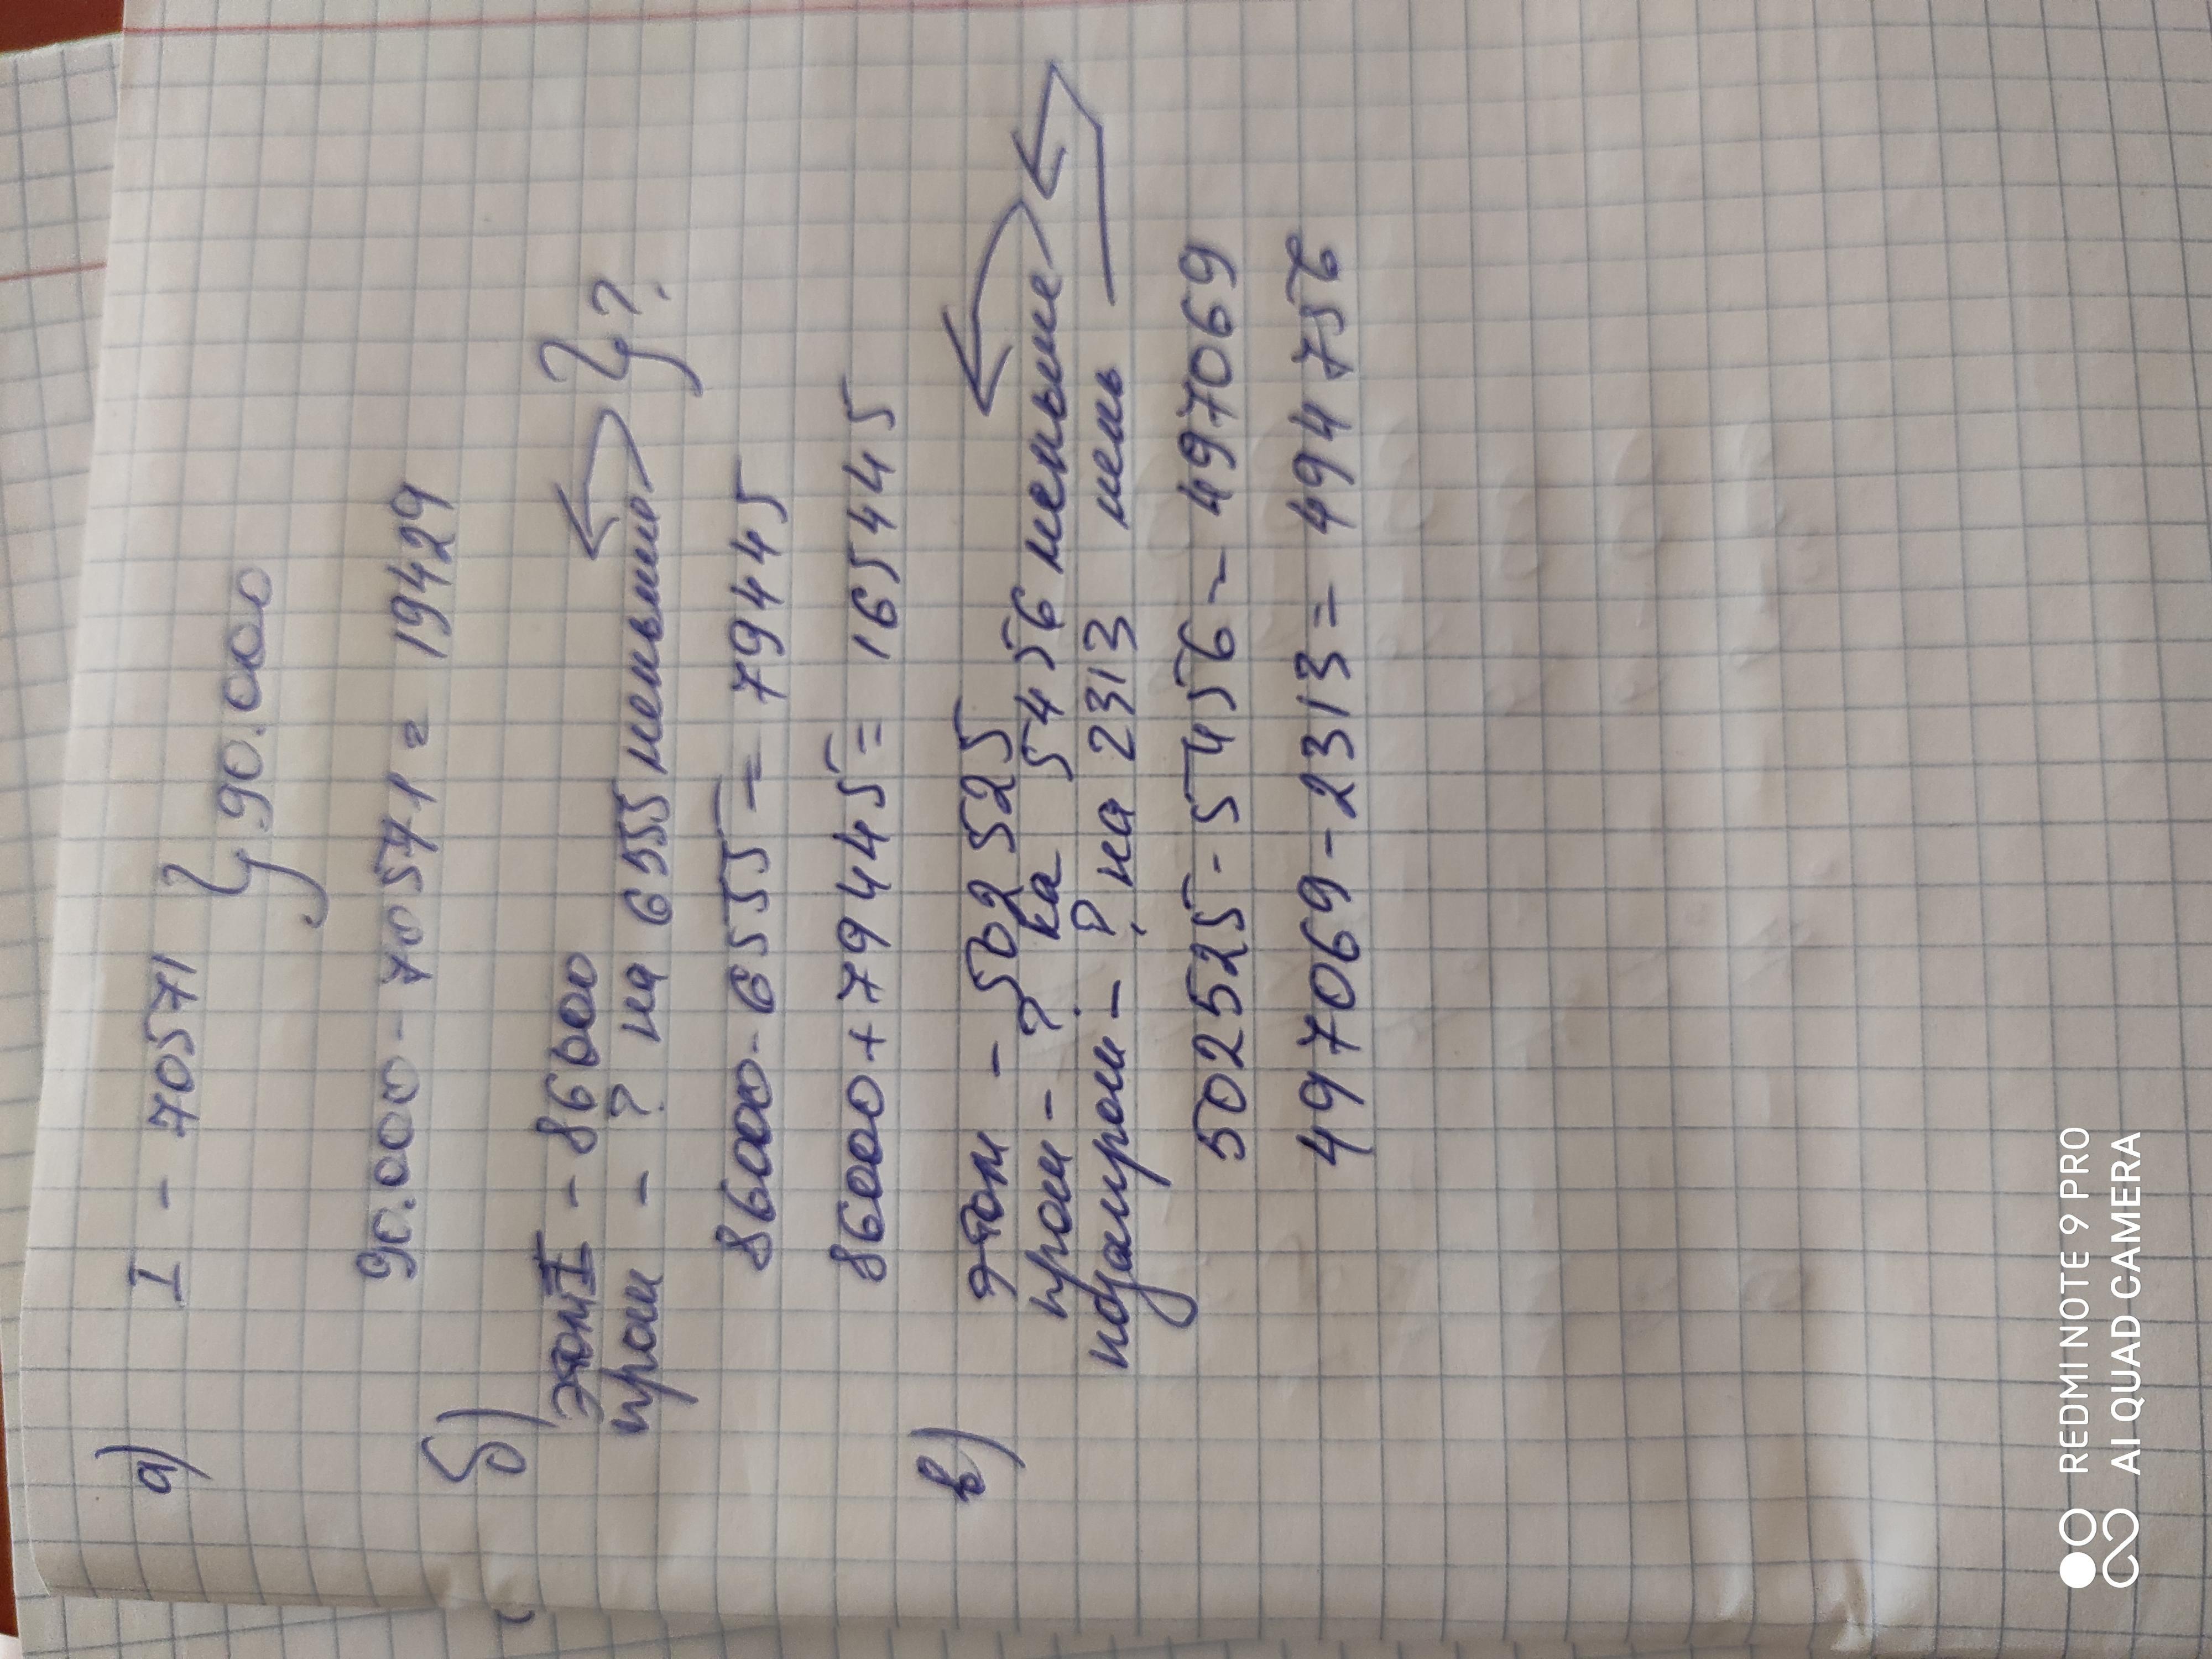 а) I - 70571
} 90.000
90.000 - 70571 = 19429
б) этом I - 86000
прош - ? на 6555 меньше } ?
86000 - 6555 = 79445
86000 + 79445 = 165445
в) этом - 502 525
прош - ? на 5456 меньше
позапрош - ?, на 2313 мень
502525 - 5456 - 497069
497069 - 2313 = 494756
REDMI NOTE 9 PRO
AI QUAD CAMERA